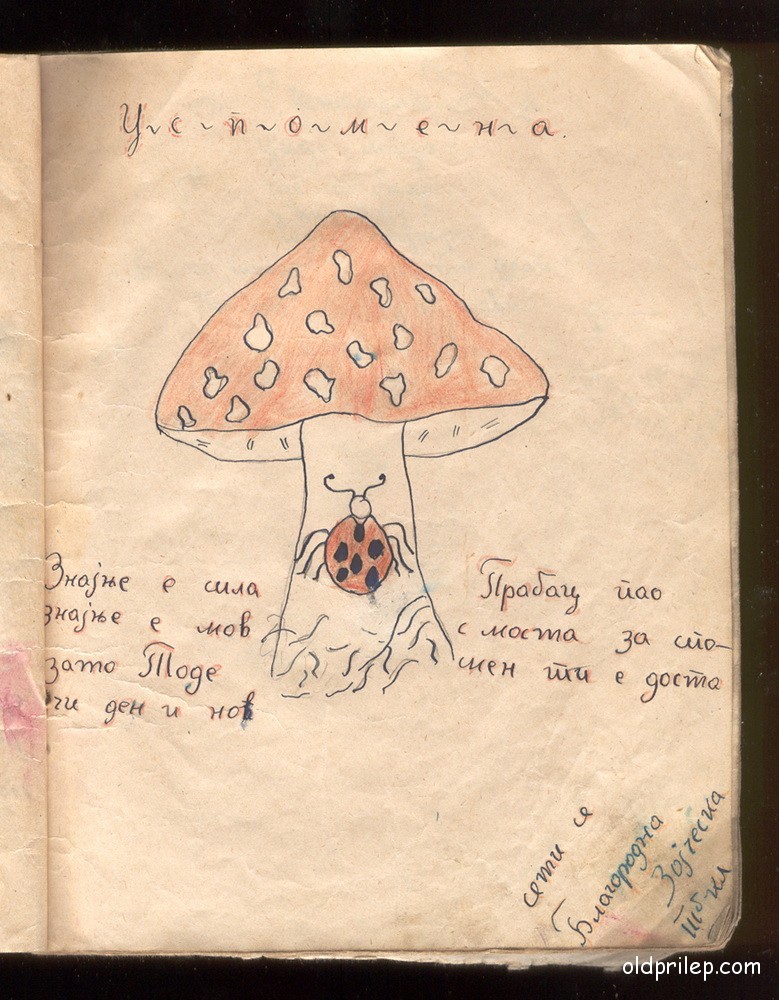 У~с~п~о~м~е~н~а.
Знајње е сила
знајње е мов
зато Тоде
учи ден и нов
Прабац пао
с моста за спо-
мен ти е доста
сети се
Благородна
Зојческа
oldprilep.com